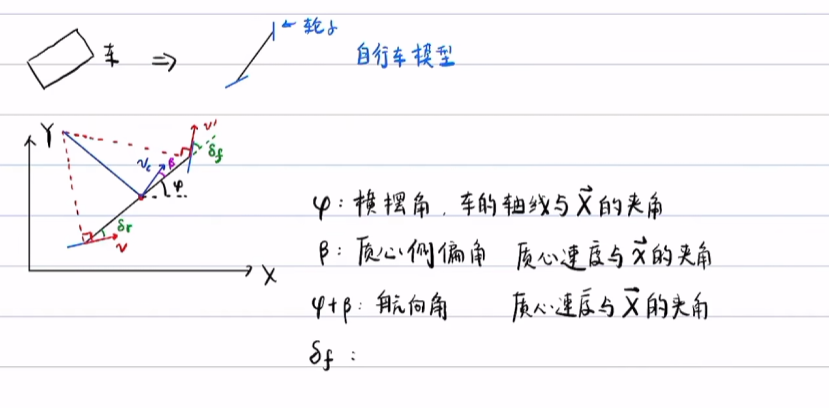 车 ⇒ ← 轮子
自行车模型
Y
v'
δf
v_c β
φ
δr
v
X
φ: 横摆角, 车的轴线与X⃗的夹角
β: 质心侧偏角 质心速度与x⃗的夹角
φ+β: 航向角 质心速度与X⃗的夹角
δf: